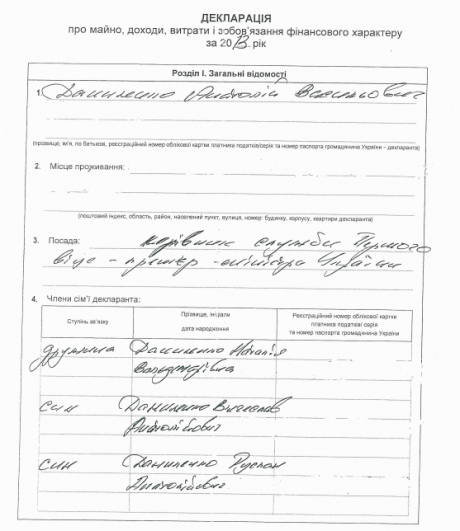 ДЕКЛАРАЦІЯ
про майно, доходи, витрати і зобов'язання фінансового характеру
за 2013 рік
Розділ І. Загальні відомості
1. Даниленко Анатолій Васильович
(прізвище, ім'я, по батькові, реєстраційний номер облікової картки платника податків/серія та номер паспорта громадянина України – декларанта)
2. Місце проживання:
(поштовий індекс, область, район, населений пункт, вулиця, номер: будинку, корпусу, квартири декларанта)
3. Посада: керівник служби Першого
віце-прем'єр-міністра України
4. Члени сім'ї декларанта:
Ступінь зв'язку
Прізвище, ініціали
дата народження
Реєстраційний номер облікової картки
платника податків/ серія
та номер паспорта громадянина України
дружина Даниленко Наталія
Володимирівна
син Даниленко
Анатолійович
син Даниленко Руслан
Анатолійович